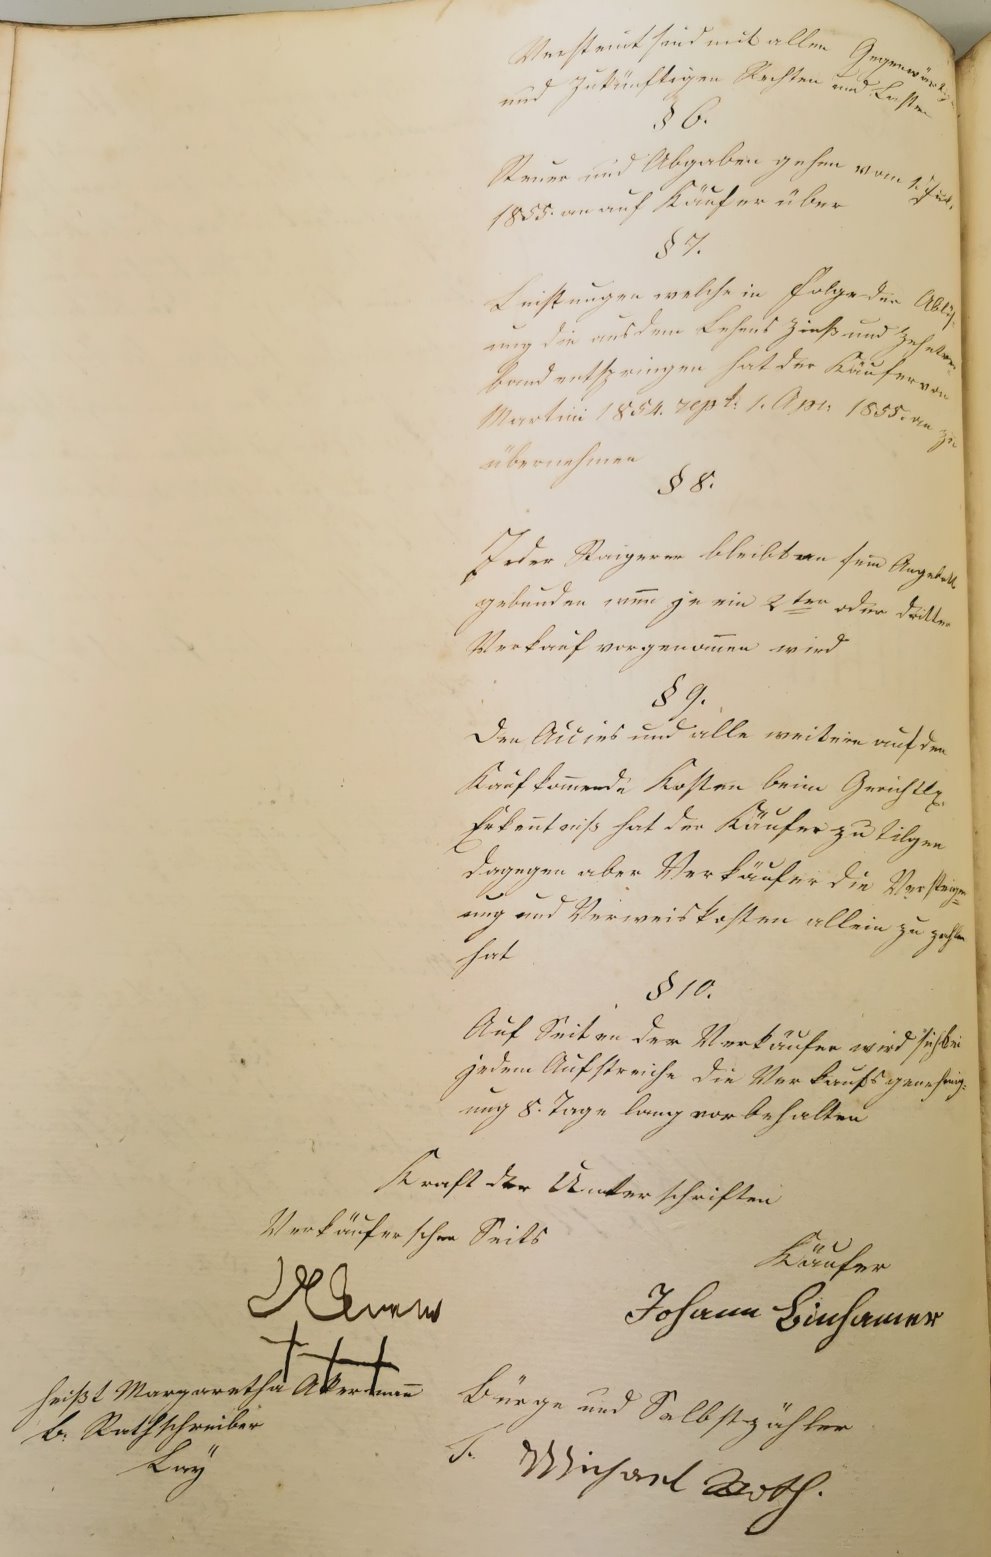 Versteint sind mit allen Gegenwärtigen
und Zukünftigen Rechten und Lasten
§ 6.
Steuer und Abgaben gehen vom 1. Juli
1855. an auf Käufer über
§ 7.
Leistungen welche in Folge der Ablös-
ung die aus dem Lehens Zins und Zehntver-
band entspringen hat der Käufer von
Martini 1854. rept: 1. Apr: 1855. an zu
übernehmen
§ 8.
Jeder Steigerer bleibt an sein Angebott
gebunden wenn je ein 2ter oder dritter
Verkauf vorgenommen wird
§ 9.
Den Accies und alle weitere auf den
Kauf kommende Kosten beim Gerichtl.
Erkenntniß hat der Käufer zu tilgen
dagegen aber Verkäufer die Versteiger=
ung und Verweiskosten allein zu zahlen
hat
§ 10.
Auf Seiten der Verkäufer wird sich bei
jedem Aufstreiche die Verkaufsgenehmig=
ung 8. Tage lang vorbehalten
Kraft der Unterschriften
Verkäuferscher Seits
Käufer
Johann
+++
heißt Margaretha Akermann
b. Rathschreiber
Lay
Bürge und Selbstzahler
T. Michael Roth.